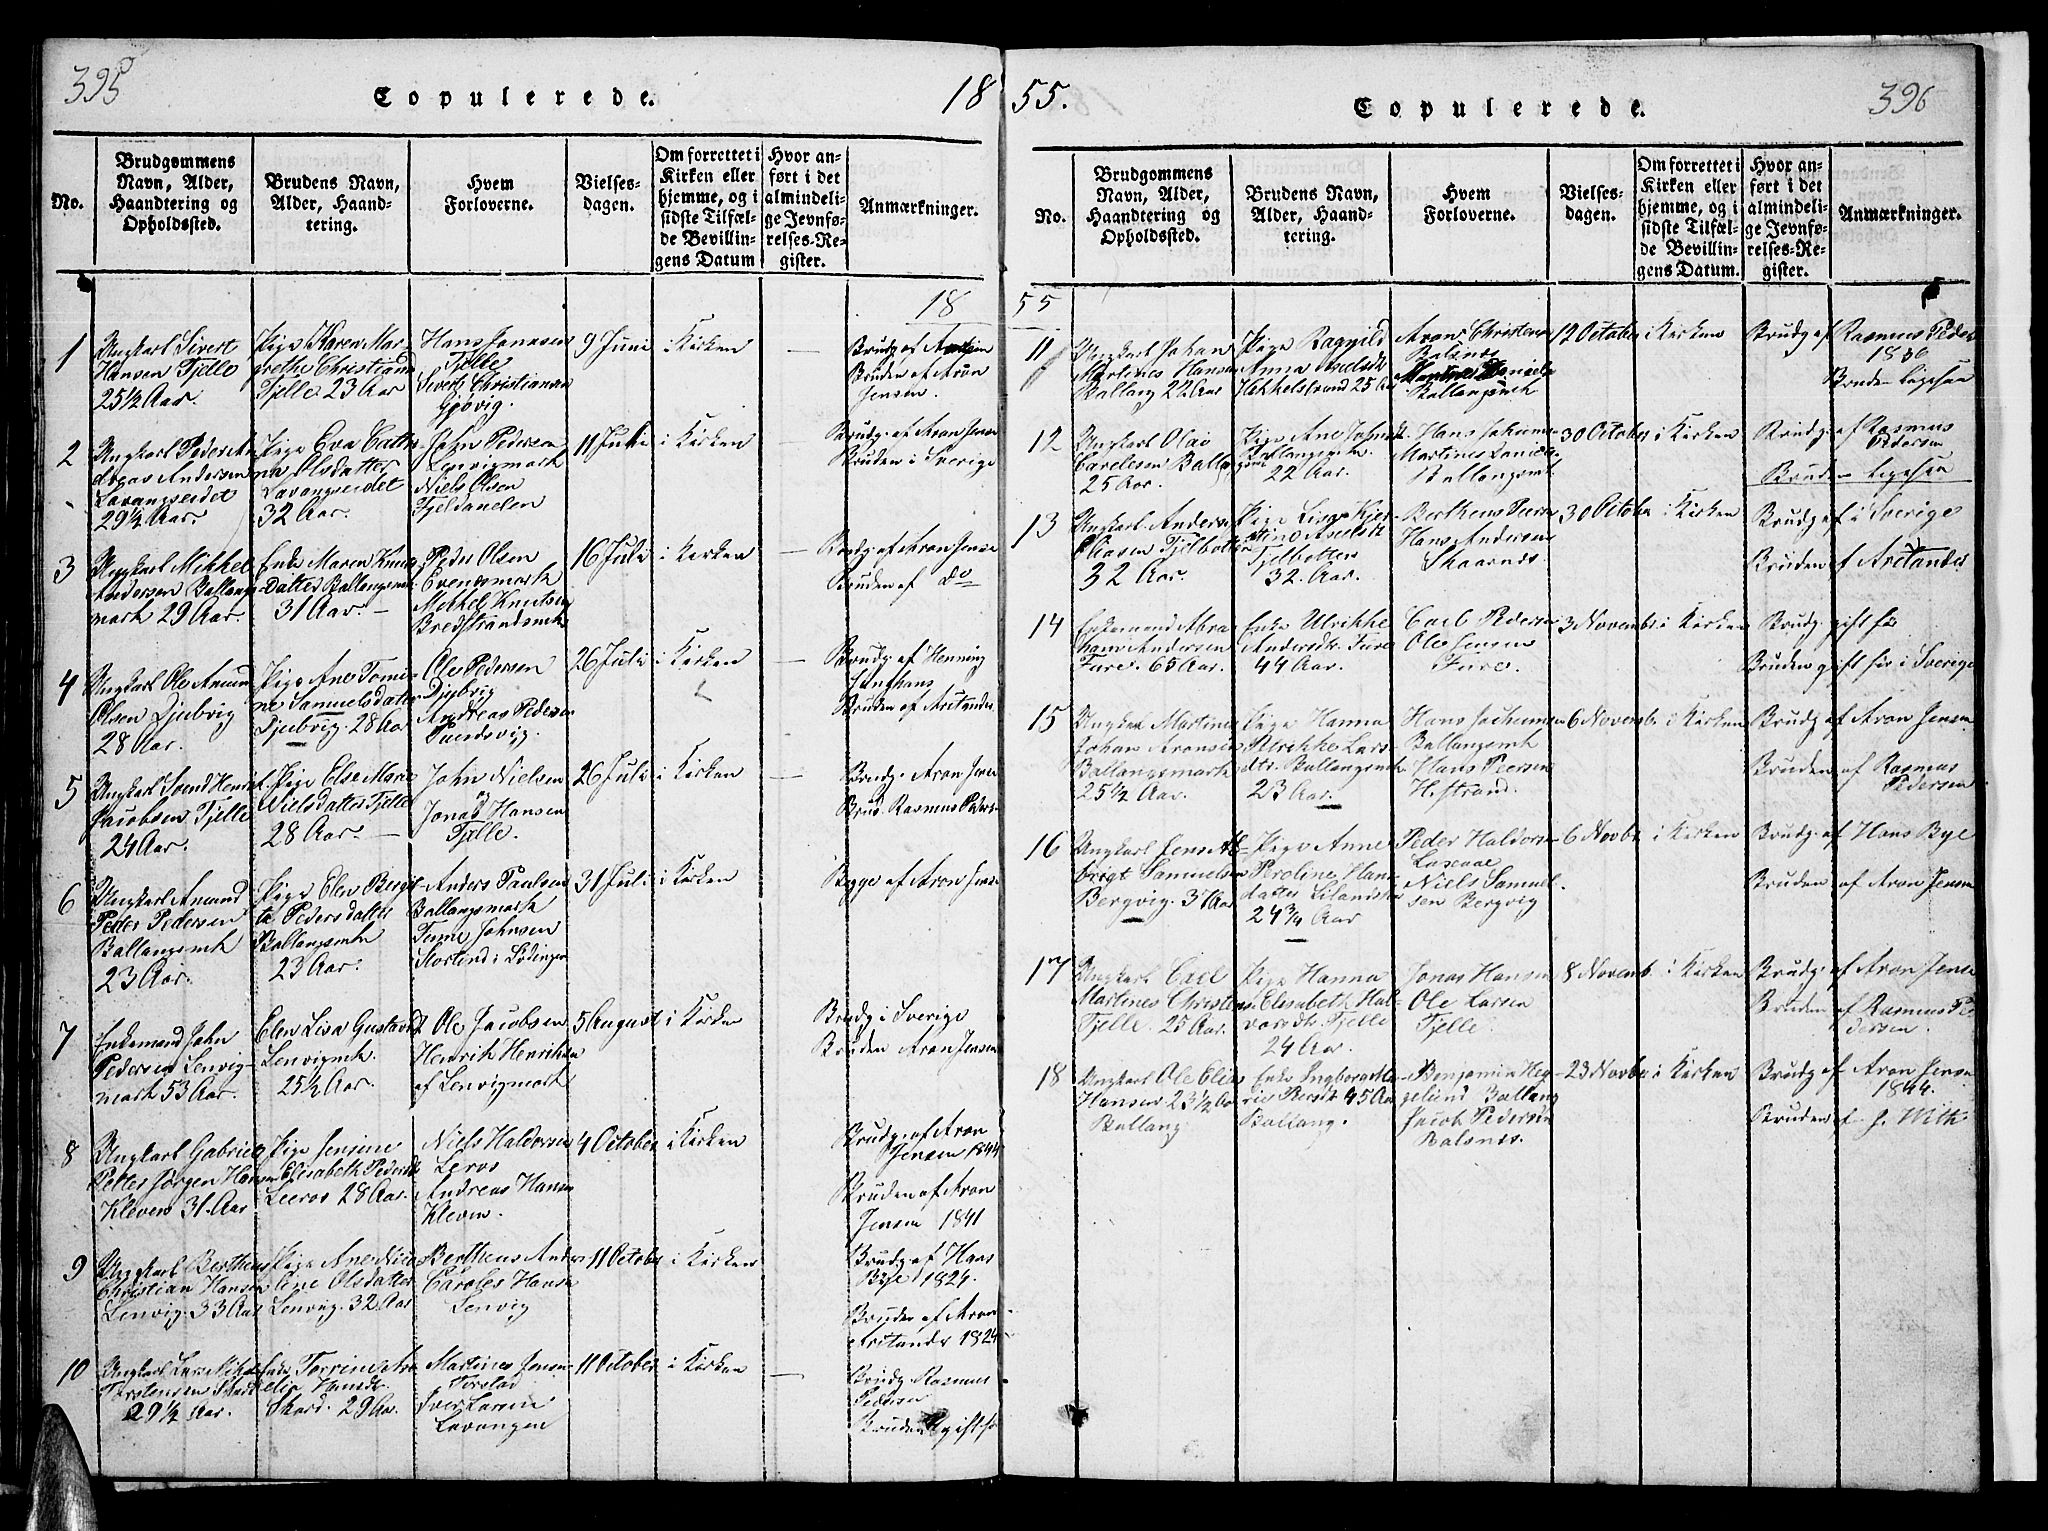 395
Copulerede.
18
No.
Brudgommens
Navn, Alder,
Haandtering og
Opholdssted.
Brudens Navn,
Alder, Haand-
tering.
Hvem
Forloverne.
Vielses-
dagen.
Om forrettet i
Kirken eller
hjemme, og i
sidste Tilfæl-
de Bevillin-
gens Datum
Hvor an-
ført i det
almindeli-
ge Jevnfø-
relses-Re-
gister.
Anmærkninger.
18
1
Ungkarl Sivert
Hansen Fjelle
25½ Aar.
Pige Karen Mar-
grethe Christians
Fjelle 23 Aar
Hans Jonassen
Fjelle
Sivert Christiansen
Gjøvig.
9 Juni
i Kirken
—
Brudg. af
Bruden af Aron
Jensen.
2
Ungkarl Peder An-
dreas Andersen
Lavangseidet
29½ Aar.
Pige Eva Catri-
na Olsdatter
Lavangseidet
32 Aar.
John Pedersen
Lenvigmark
Niels Olsen
Fjeldanelen
11 Juli
i Kirken
—
Brudg. af Aron Jense
Bruden i Sverige
3
Ungkarl Mikkel
Andersen Ballangs
mark 29 Aar.
Enke Maren Knu
datter Ballangsmk
31 Aar. —
Peder Olsen
Evensmark
Mikkel Knutsen
Bredstrandsmk
16 Juli
i Kirken
—
Brudg. af Aron Jense
Bruden af do
4
Ungkarl Ole Amun
Olsen Djubvig
28 Aar.
Pige Ane Tomi-
ne Samuelsdatter
Djubvig. 28 Aar
Ole Pedersen
Djubvig
Andreas Pedersen
26 Juli
i Kirken
—
Brudg. af Henning
Junghans
Bruden af Arctander
5
Ungkarl Svend Henrik
Jacobsen Fjelle
24 Aar.
Pige Else Marie
Nielsdatter Fjelle
28 Aar. —
John Nielsen
og
Jonas Hansen
Fjelle.
26 Juli
i Kirken
—
Brudg. Aron Jense
Brud. Rasmus Peders
6
Ungkarl Amund
Peder Pedersen
Ballangsmk
23 Aar.
Pige Elen Bergit
te Pedersdatter
Ballangsmk
23 Aar.
Anders Paulsen
Ballangsmark
Johnsen
Storlend i Lødingen
31 Juli
i Kirken
Begge af Aron Jense
7
Enkemand John
Pedersen Lenvig-
mark 53 Aar.
Elen Lisa Gustavsd
Lenvigmk.
25½ Aar.
Ole Jacobsen
Henrik Henriksen
af Lenvigmark
5 August
i Kirken
Brudg i Sverige
Bruden Aron Jensen
8
Ungkarl Gabriel
Petter Jørgen Hansen
Kleven 31 Aar
Pige Jensine
Elisabeth Pedersdt
Leeros 28 Aar.
Niels Haldorsen
Leros
Andreas Hansen
Kleven.
4 October
i Kirken
Brudg. af Aron
Jensen 1844
Bruden af Aron
Jensen 1841
9
Ungkarl Bertheus
Christian Hansen
Lenvig. 33 Aar
Pige Ane Nico
line Olsdatter
Lenvig. 32 Aar
Bertheus Anders
Caroles Hansen
Lenvig
11 October
i Kirken
Brudg af Hans
Bye 1824.
Bruden af Aron
Arctander 1824
10
Ungkarl Lars Nikol
Torstensen Skard
29½ Aar.
Enke Torrine Am
elia Hansdt
Skard. 29 Aar.
Martines Jensen
Torstad
Iver Larsen
Lavangen
11 October
i Kirken
—
Brudg. Rasmus
Pedersen
Bruden gift før
55.
Copulerede.
396
No.
Brudgommens
Navn, Alder,
Haandtering og
Opholdssted.
Brudens Navn,
Alder, Haand-
tering.
Hvem
Forloverne.
Vielses-
dagen.
Om forrettet i
Kirken eller
hjemme, og i
sidste Tilfæl-
de Bevillin-
gens Datum.
Hvor an-
ført i det
almindeli-
ge Jevnfø-
relses-Re-
gister.
Anmærkninger.
55
11
Ungkarl Johan
Martines Hansen
Ballang 22 Aar
Pige Ragnild
Anna Axelsdt
Hekkelstrand 25 Aar
Arons Christens
Balsnes
Daniels
Ballangsmk
12 October
i Kirken
Brudg af Rasmus Peders
1836
Bruden ligesaa
12
Ungkarl Olai
Carelesen Ballangsmk
25 Aar.
Pige Ane Johnsdt.
Ballangsmk.
22 Aar.
Hans Jochumsen
Martines Daniels
Ballangsmk
30 October
i Kirken
Brudg. af Rasmus
Pedersen
Bruden ligesaa
13
Ungkarl Anders
Fjelbotten
32 Aar.
Pige Lisa Kjer-
stina Axelsdt
Fjelbotten
32. Aar.
Bertheus Peers
Hans Andersen
Skaarnes.
30 Octobe
i Kirken
Brudg af i Sverige
Bruden af Arctander
14
Enkemand Abra
ham Andersen
Fure. 65 Aar.
Enke Ulrikke
Andersdt. Fure
44 Aar.
Carl Pedersen
Ole Jensen
Fure.
3 Novemb.
i Kirken
Brudg. gift før
Bruden gift før i Sverige
15
Ungkarl Martines
Johan Aronsen
Ballangsmark
25½ Aar.
Pige Hanna
Ulrikke Lars-
dtr. Ballangsmk
23 Aar.
Hans Jochumsen
Ballangsmk
Hans Peersen
H.strand.
6 Novemb.
i Kirken
Brudg af Aron Jensen
Bruden af Rasmus
Pedersen
16
Ungkarl Jens Al-
brigt Samuelsen
Bergvig. 31 Aar
Pige Anne
Peroline Han
datter Lilandskar
24¾ Aar
Peder Haldorsen
Niels Samuel
sen Bergvig
6 Novbr
i Kirken
Brudg. af Hans Bye
Bruden af Aron Jensen
17
Ungkarl Carl
Martines Christens.
Fjelle. 25 Aar.
Pige Hanna
Elisabeth Hal-
vorsdt. Fjelle
24 Aar.
Jonas Hansen
Ole Larsen
Fjelle.
8 Novemb
i Kirken
Brudg. af Aron Jensen
Bruden af Rasmus Pe
dersen.
18
Ungkarl Ole Elias
Hansen 23½ Aar
Ballang
Enke Ingborg Ma-
rie Persdt 45 Aar
Ballang.
Benjamin Heg-
gelund Ballang
Jacob Pedersen
Balsnes.
23 Novbr
i Kirken
Brudg af Aron Jensen
1844.
Bruden af J. Nith